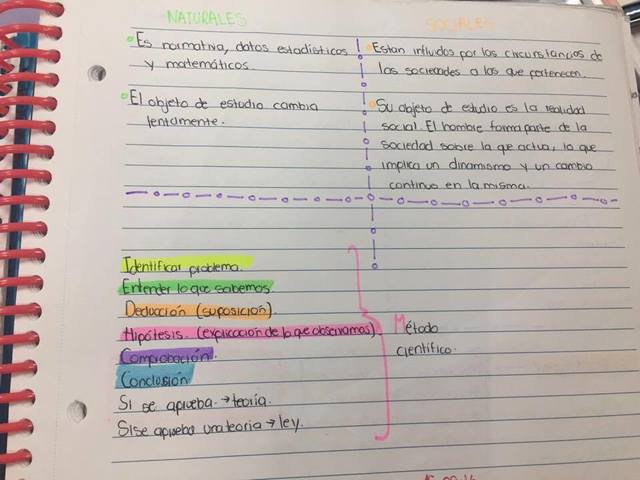 NATURALES
SOCIALES
Es normativa, datos estadísticos
y matemáticos.
El objeto de estudio cambia
lentamente.
Estan influidos por las circunstancias de
las sociedades a las que pertenecen.
Su objeto de estudio es la realidad
social. El hombre forma parte de la
sociedad sobre la que actua, lo que
implica un dinamismo y un cambio
continuo en la misma.
Identificar problema.
Entender lo que sabemos.
Deducción (suposición).
Hipótesis. (explicación de lo que observamos)
Comprobación.
Conclusión
Si se aprueba. → teoría.
Si se aprueba una teoria → ley.
Método
científico.